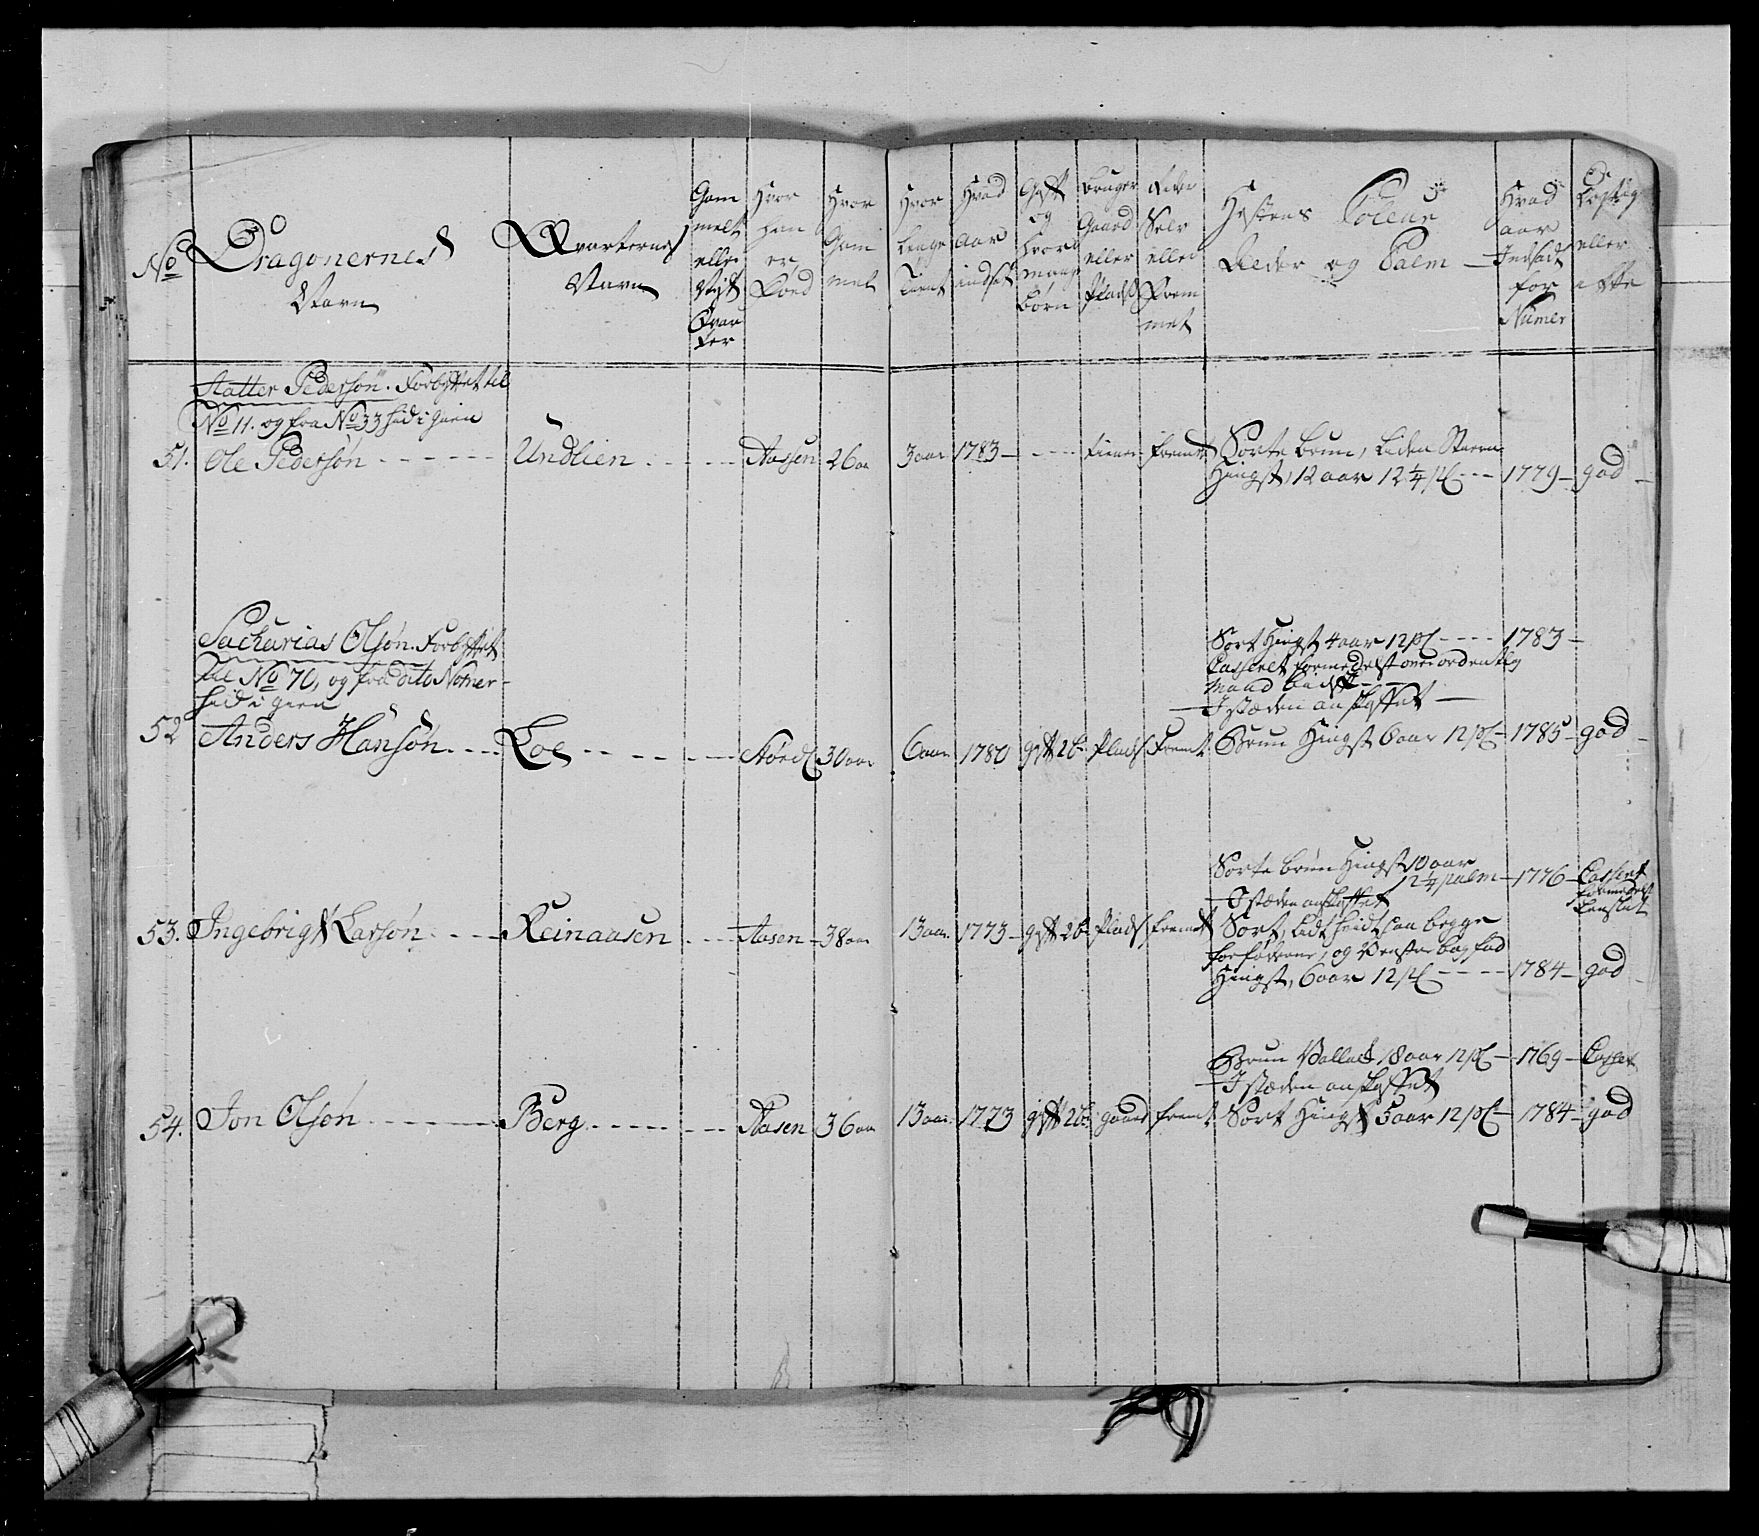 No
Dragonernes
Navn
Qvarternes
Navn
Gam
melt
eller
Nyt
Qvar
ter
Hvor
han
er
Föed
Hvor
Gam
mel
Hvor
lenge
tient
Hvad
aar
indsat
Gift
og
hvor
mange
börn
bruger
Gaard
eller
Plads
Rider
Selv
eller
Frem
met
Hestens Coleur
Alder og Palm
Hvad
aar
Indsadt
for
Numer
Dygtig
eller
ikke
Statter Pedersön. Forbyttet til
No 11. og fra No 33 hid i gien
51. Ole Pedersön Undlien Aasen 26 aar 3 aar 1783 tiener fremet Sorte brun, liden Stierne
Hingst, 12 aar 12 1/4 pl 1779 god
Sacharias Olsön. Forbyttet
til No 70, og fra dito Nomer
hid i gien
Sort Hingst 4 aar 12 pl 1783
Casseret formedelst overordentlig
Mand
I stæden anskaffet
52 Anders Hansön Loe Störd 30 aar 6 aar 1780 gift 2 b. Plads Fremt. Brun Hingst 6 aar 12 pl 1785 god
Sorte brun Hingst 10 aar
12 1/4 palm 1776 Cassert
formedelst
I stæden anskaffet
53. Ingebrigt Larsön Reinaasen Aasen 38 aar 13 aar. 1773 gift 2 b. Plads fremdt Sort, lidt hvidt paa begge
forföderne, og Venster bag fod
Hingst, 6 aar 12 pl 1784 god
Brun Vallack 18 aar 12 pl 1769 Casset
I stæden anskaffet
54. Jon Olsön Berg Aasen 36 aar 13 aar. 1773 gift 2 b. gaard fremt. Sort Hingst 5 aar 12 pl 1784 god